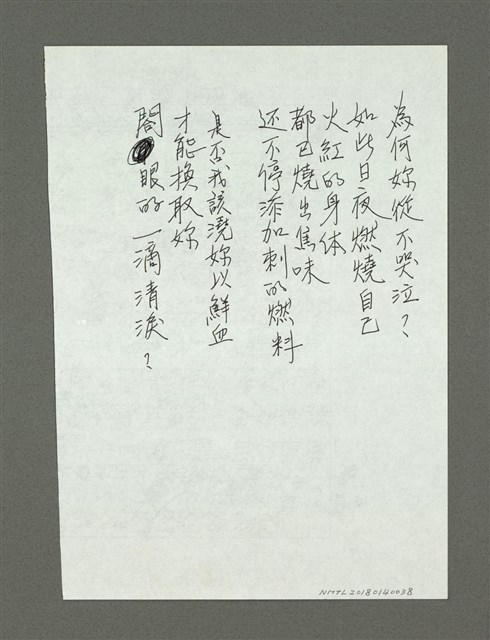 為何妳從不哭泣？
如此日夜燃燒自己
火紅的身体
都已燒出焦味
还不停添加刺的燃料
是否我該澆妳以鮮血
才能換取妳
閤眼的一滴清淚？
NMTL20180140038